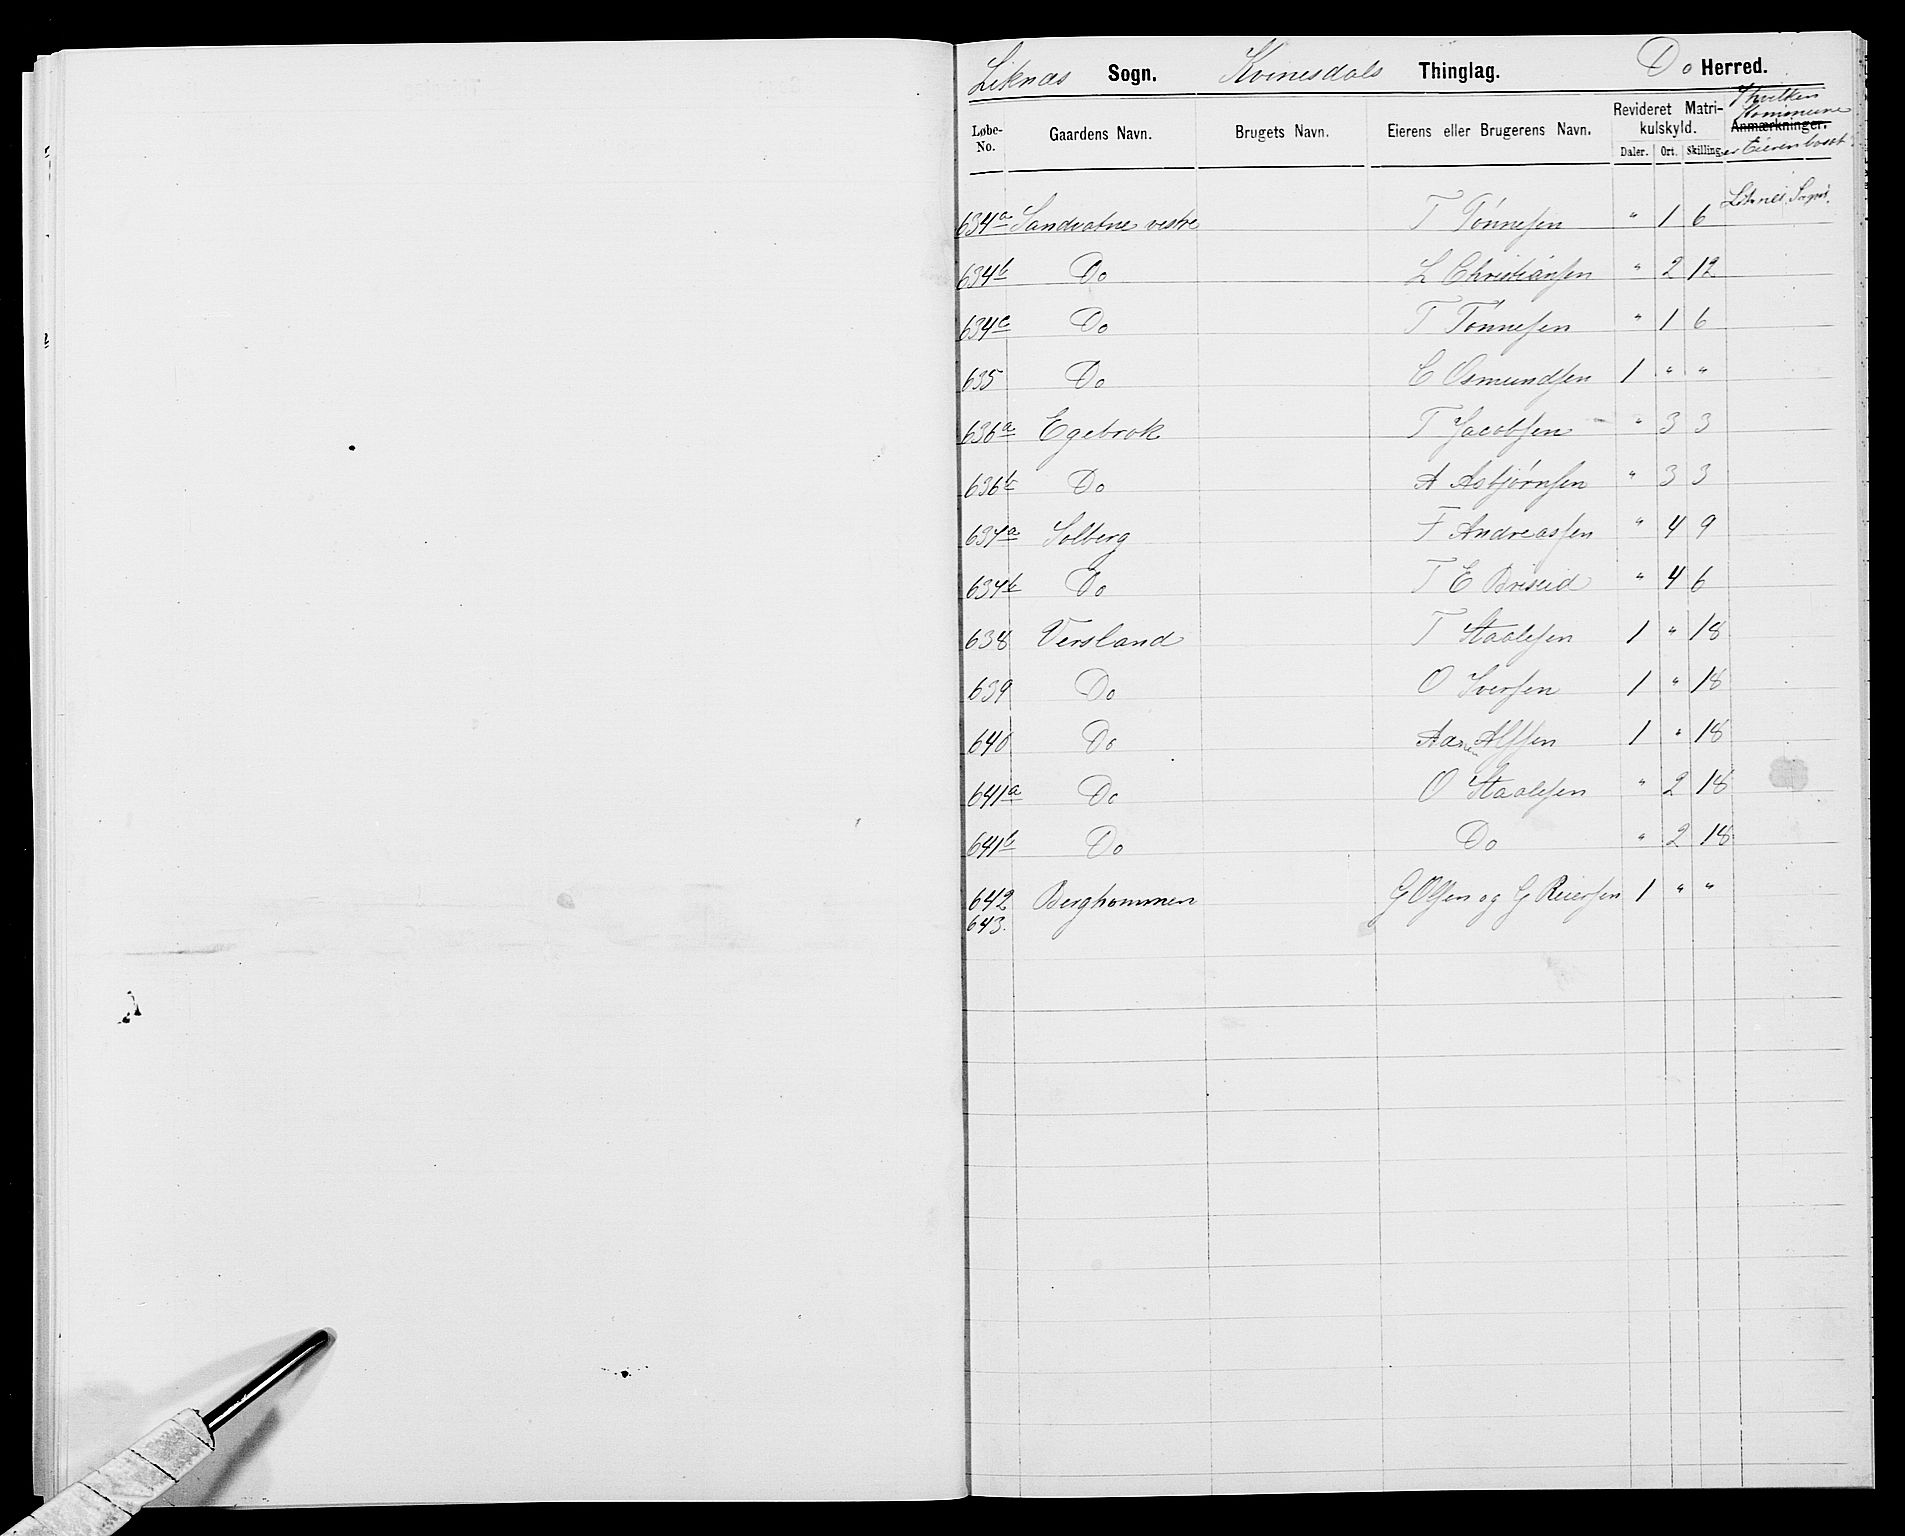 Liknæs Sogn. Kvinesdals Thinglag. Do Herred.
Løbe-No. Gaardens Navn. Brugets Navn. Eierens eller Brugerens Navn. Revideret Matrikulskyld. Anmærkninger. I hvilken Kommune er Eieren bosat
Daler. Ort. Skilling.
634a Sandvatne vestre T Tønnesen " 1 6 Liknes Sogn.
634b Do L Christiansen " 2 12
634c Do T Tønnesen " 1 6
635 Do C Osmundsen 1 " "
636a Egebrok T Jacobsen " 3 3
636b Do A Asbjørnsen " 3 3
637a Solberg F Andreassen " 4 9
637b Do T E Briseid " 4 6
638 Versland T Staalesen 1 " 18
639 Do O Iversen 1 " 18
640 Do Alfsen 1 " 18
641a Do O Staalesen " 2 18
641b Do Do " 2 18
642 Berghommen G Olsen og G Reiersen 1 " "
643.